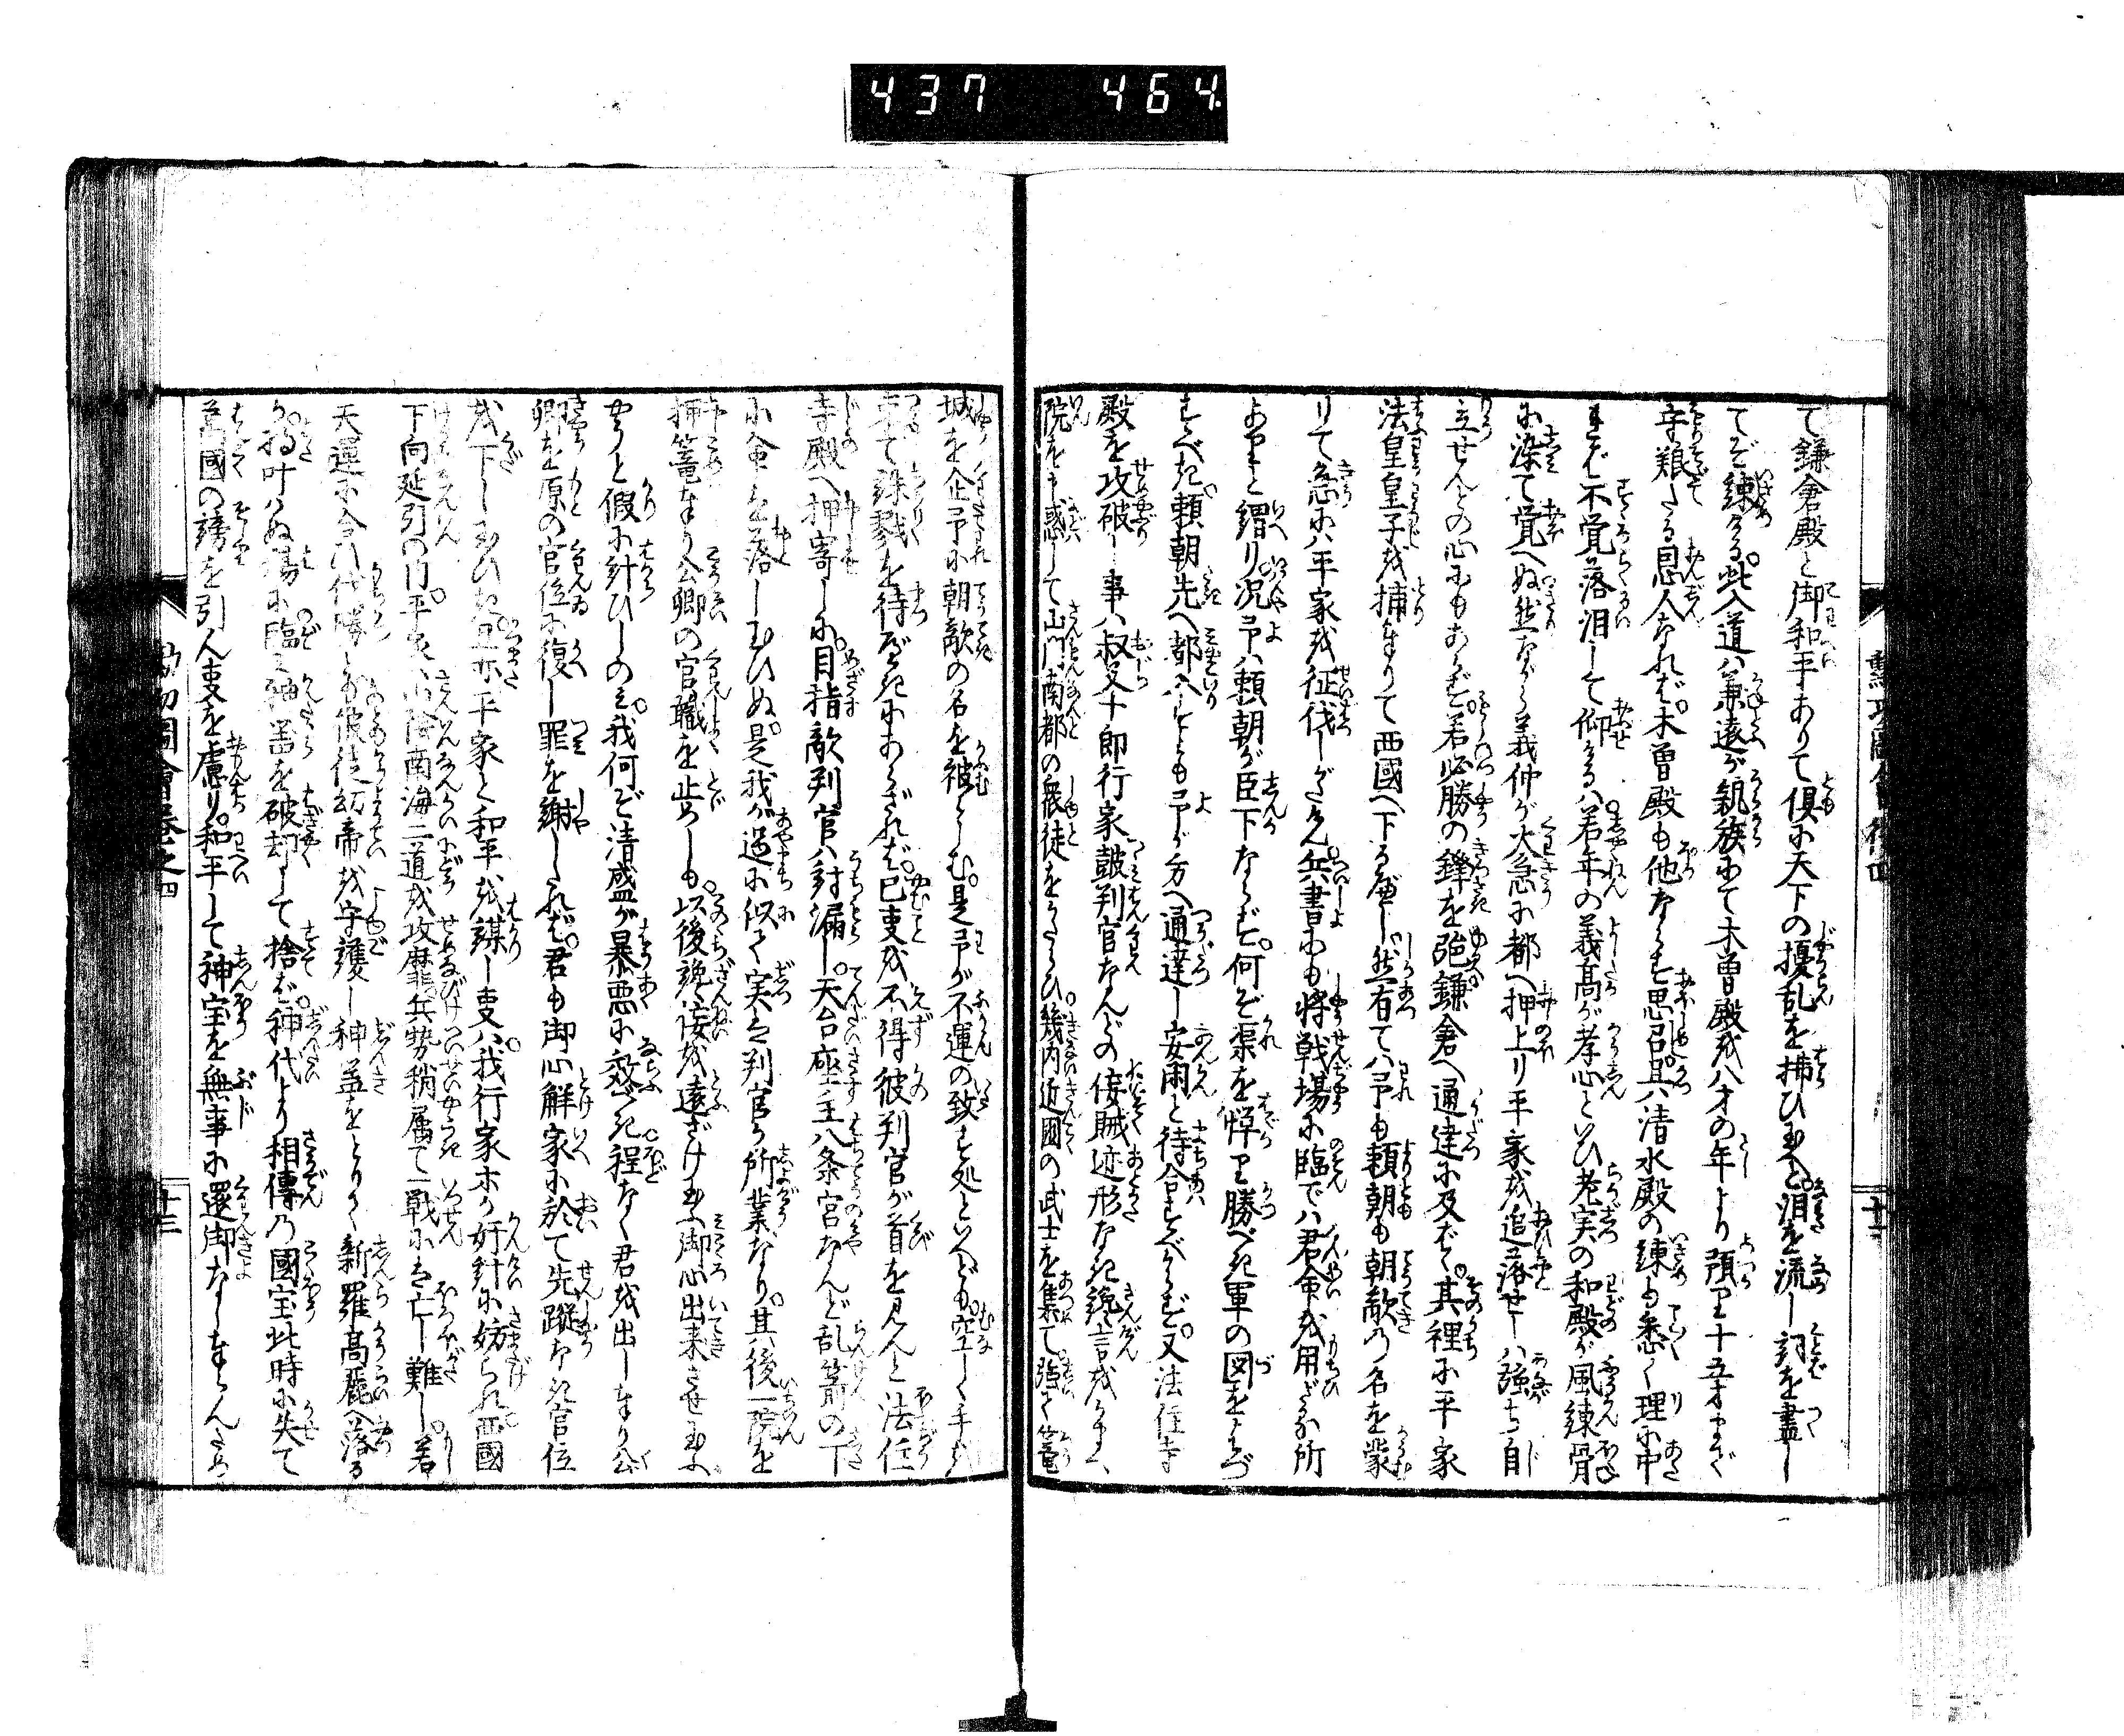 437 464
て鎌倉殿と御和平ありて倶に天下の擾乱を拂ひ玉へと泪を流し詞を盡し
てぞ練ける此入道ハ兼遠が親族にて木曽殿を八才の年より預り十五才まで
守糧たる恩人なれバ木曽殿も他ならず思召且ハ清水殿の練も悉く理に中
れバ不覚落泪して仰けるハ若年の義高が孝心といひ老実の和殿が風練骨
に染て覚へぬ然ながら義仲が火急に都へ押上り平家を追落せしハ強ち自
立せんとの心にもあらず若必勝の鋒を弛鎌倉へ通達に及バゞ其裡に平家
法皇皇子を捕奉りて西國へ下るべし然有てハ予も頼朝も朝敵の名を蒙
りて急にハ平家を征伐しがたし兵書にも将戦場に臨でハ君命を用ざる所
ありと謂り況予ハ頼朝が臣下ならず何ぞ渠を憚り勝べき軍の図をはづ
すべき頼朝先へ都入しとも予が方へ通達し安閑と待合すべからず又法住寺
殿を攻破し事ハ叔父十郎行家鼓判官なんどの佞賊迹形なき讒言をかまへ
院をまど惑して山門南都の衆徒をかたらひ畿内近國の武士を集て強く篭
城を企予に朝敵の名を被らしむ是予が不運の致す処といへども空しく手を
束て誅戮を待べきにあらざれバ已事を不得彼判官が首を見んと法住
寺殿へ押寄しに目指敵判官ハ討漏し天台座主八条宮なんど乱箭の下
に命を落し玉ひぬ是我が過に似て実ハ判官が所業なり其後一院を
押篭奉り公卿の官職を止めしも以後讒佞を遠ざけ玉ふ御心出来させ玉へ
かしと假に計ひしのミ我何ぞ清盛が暴悪に效べき程なく君を出し奉り公
卿を原の官位に復し罪を謝したれバ君も御心解家に於て先蹤なき官位
を下し玉ひき且亦平家と和平を謀し事ハ我行家ホが奸計に妨られ西國
下向延引の内平氏ハ山陰南海二道を攻靡兵勢稍属て一戦にハ亡し難し若
天運に合ハ代勝とも彼徒幼帝を守護し神器をとりて新羅高麗へ落る
か搗叶ハぬ場に臨ミ神器を破却して捨バ神代より相傳の國宝此時に失て
萬國の謗を引ん事を慮り和平して神宝を無事に還御なし奉らんため
勲功圖會巻之四
十三